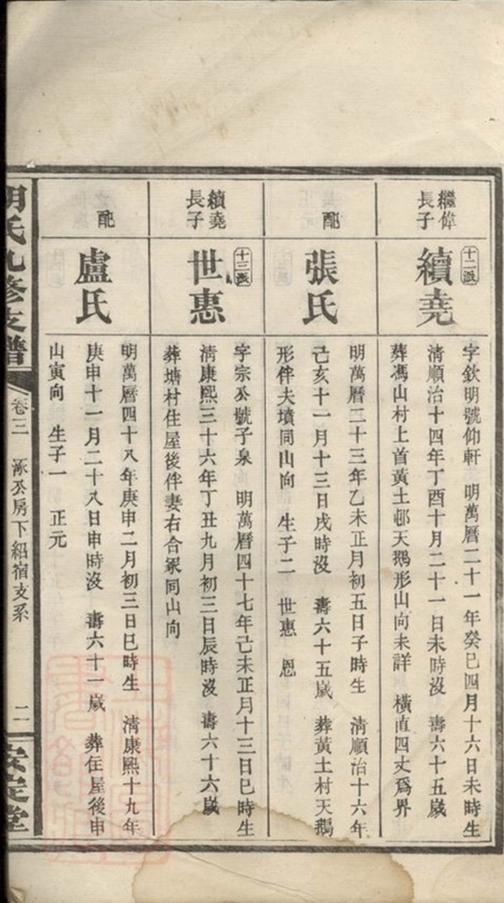 繼偉
長子
十二派
續堯
字欽明號仰軒 明萬曆二十一年癸巳四月十六日未時生
清順治十四年丁酉十月二十一日未時沒 壽六十五歲
葬馮山村上首黃土邨天鵝形山向未詳 橫直四丈爲界
配
張氏
明萬曆二十三年乙未正月初五日子時生 清順治十六年
己亥十一月十三日戌時沒 壽六十五歲 葬黃土村天鵝
形伴夫墳同山向 生子二 世惠 恩
續堯
長子
十三派
世惠
字宗公號子泉 明萬曆四十七年己未正月十三日巳時生
清康熙三十六年丁丑九月初三日辰時沒 壽六十六歲
葬塘村住屋後伴妻右合冢同山向
配
盧氏
明萬曆四十八年庚申二月初三日巳時生 清康熙十九年
庚申十一月二十八日申時沒 壽六十一歲 葬住屋後申
山寅向 生子一 正元
胡氏九修支譜
卷三 涿公房下紹宿支系
二一
安定堂